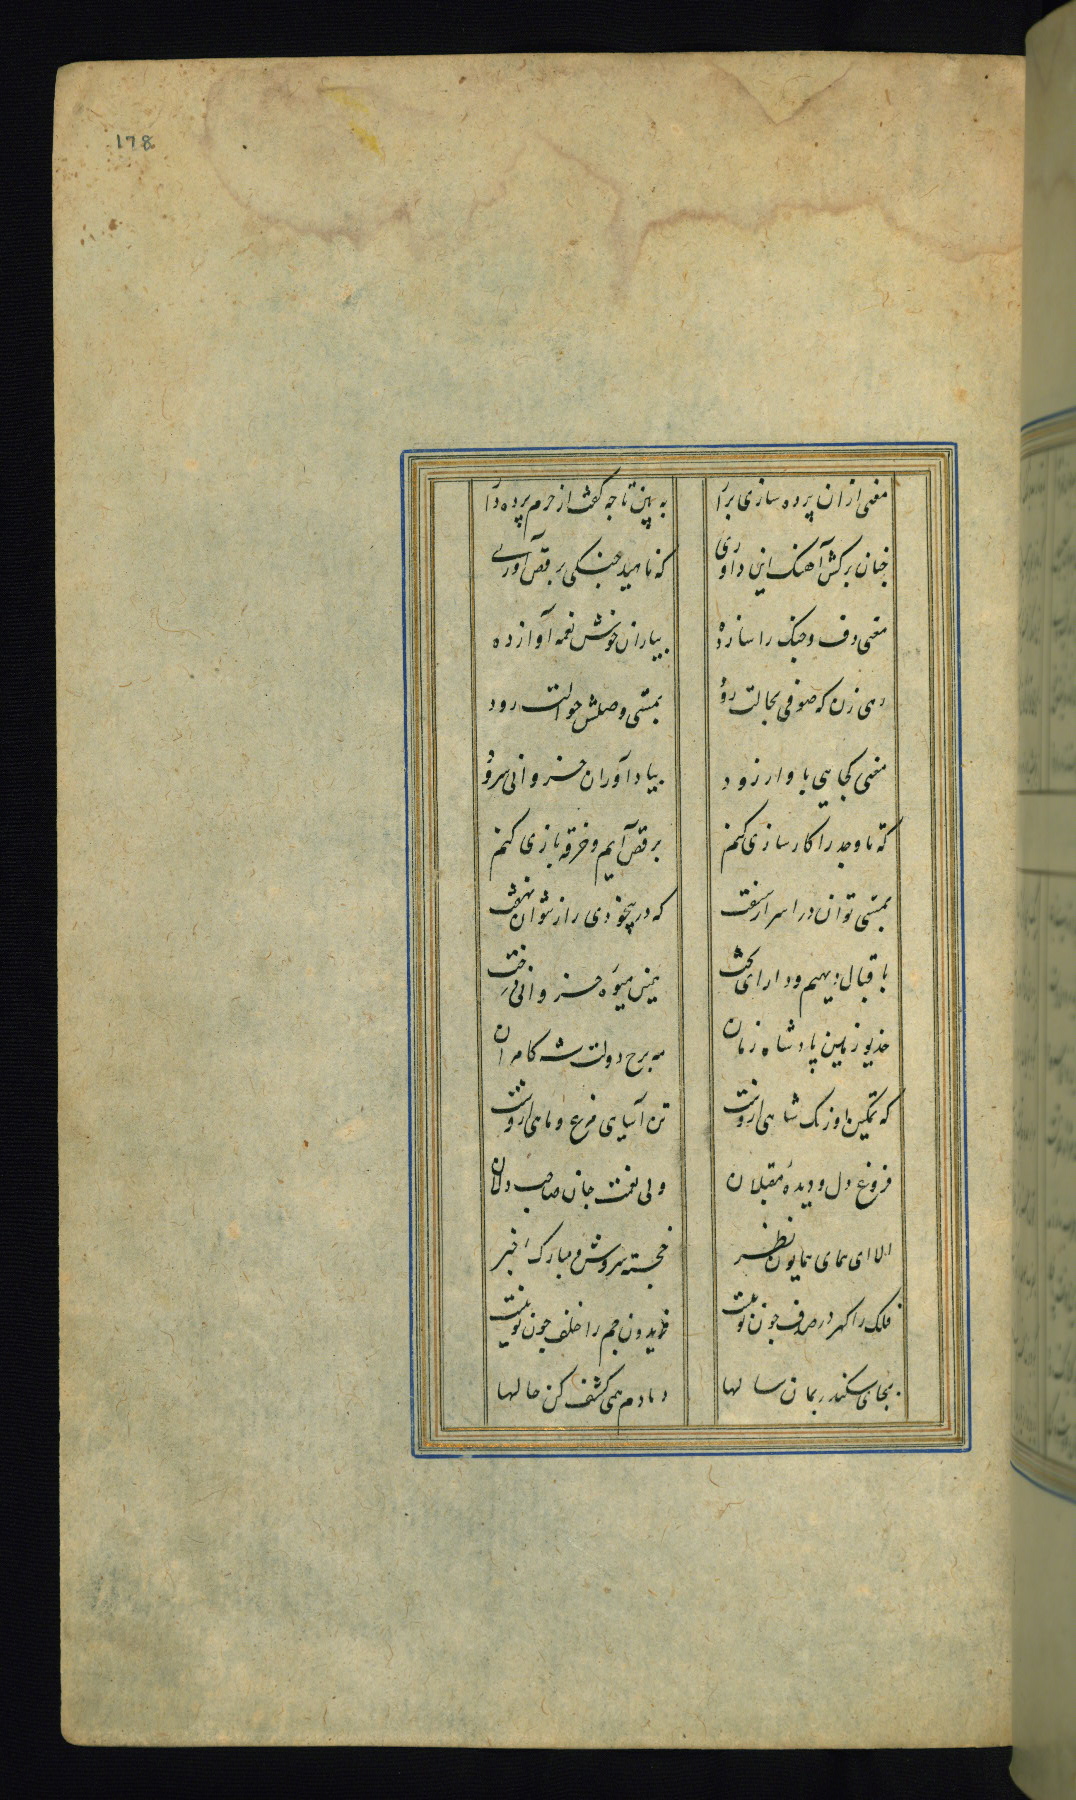 178
مغنی از ان پرده سازی برآ
به بین تا چه گفت از حرم پرده دآ
چنان برکش آهنک این داوری
که ناهید چنکی برقص آوری
مغنی دف و چنک را ساز ده
بیاران خوش نغمه آواز ده
رهی زن که صوفی بحالت رود
بمستی وصلش حوالت رود
مغنی کجایی باواز رود
بیاد آور ان خسروانی سرود
که تا وجد را کارسازی کنم
برقص آیم و خرقه بازی کنم
بمستی توان در اسرار سفت
که در بیخودی راز نتوان نهفت
باقبال دیهیم و دارای تخت
بهین میوه خسروانی درخت
خدیو زمین پادشاه زمان
مه برج دولت شه کامران
که تمکین اورنک شاهی ازوست
تن آسیای مرغ و ماهی ازوست
فروغ دل و دیده مقبلان
ولی نعمت جان صاحب دلان
الا ای همای همایون نظر
خجسته سروش مبارک خبر
فلک را کهر در صدف چون تو نیست
فریدون جم را خلف چون تو نیست
بجای سکندر بمان سالها
دمادم همی کشف کن حالها